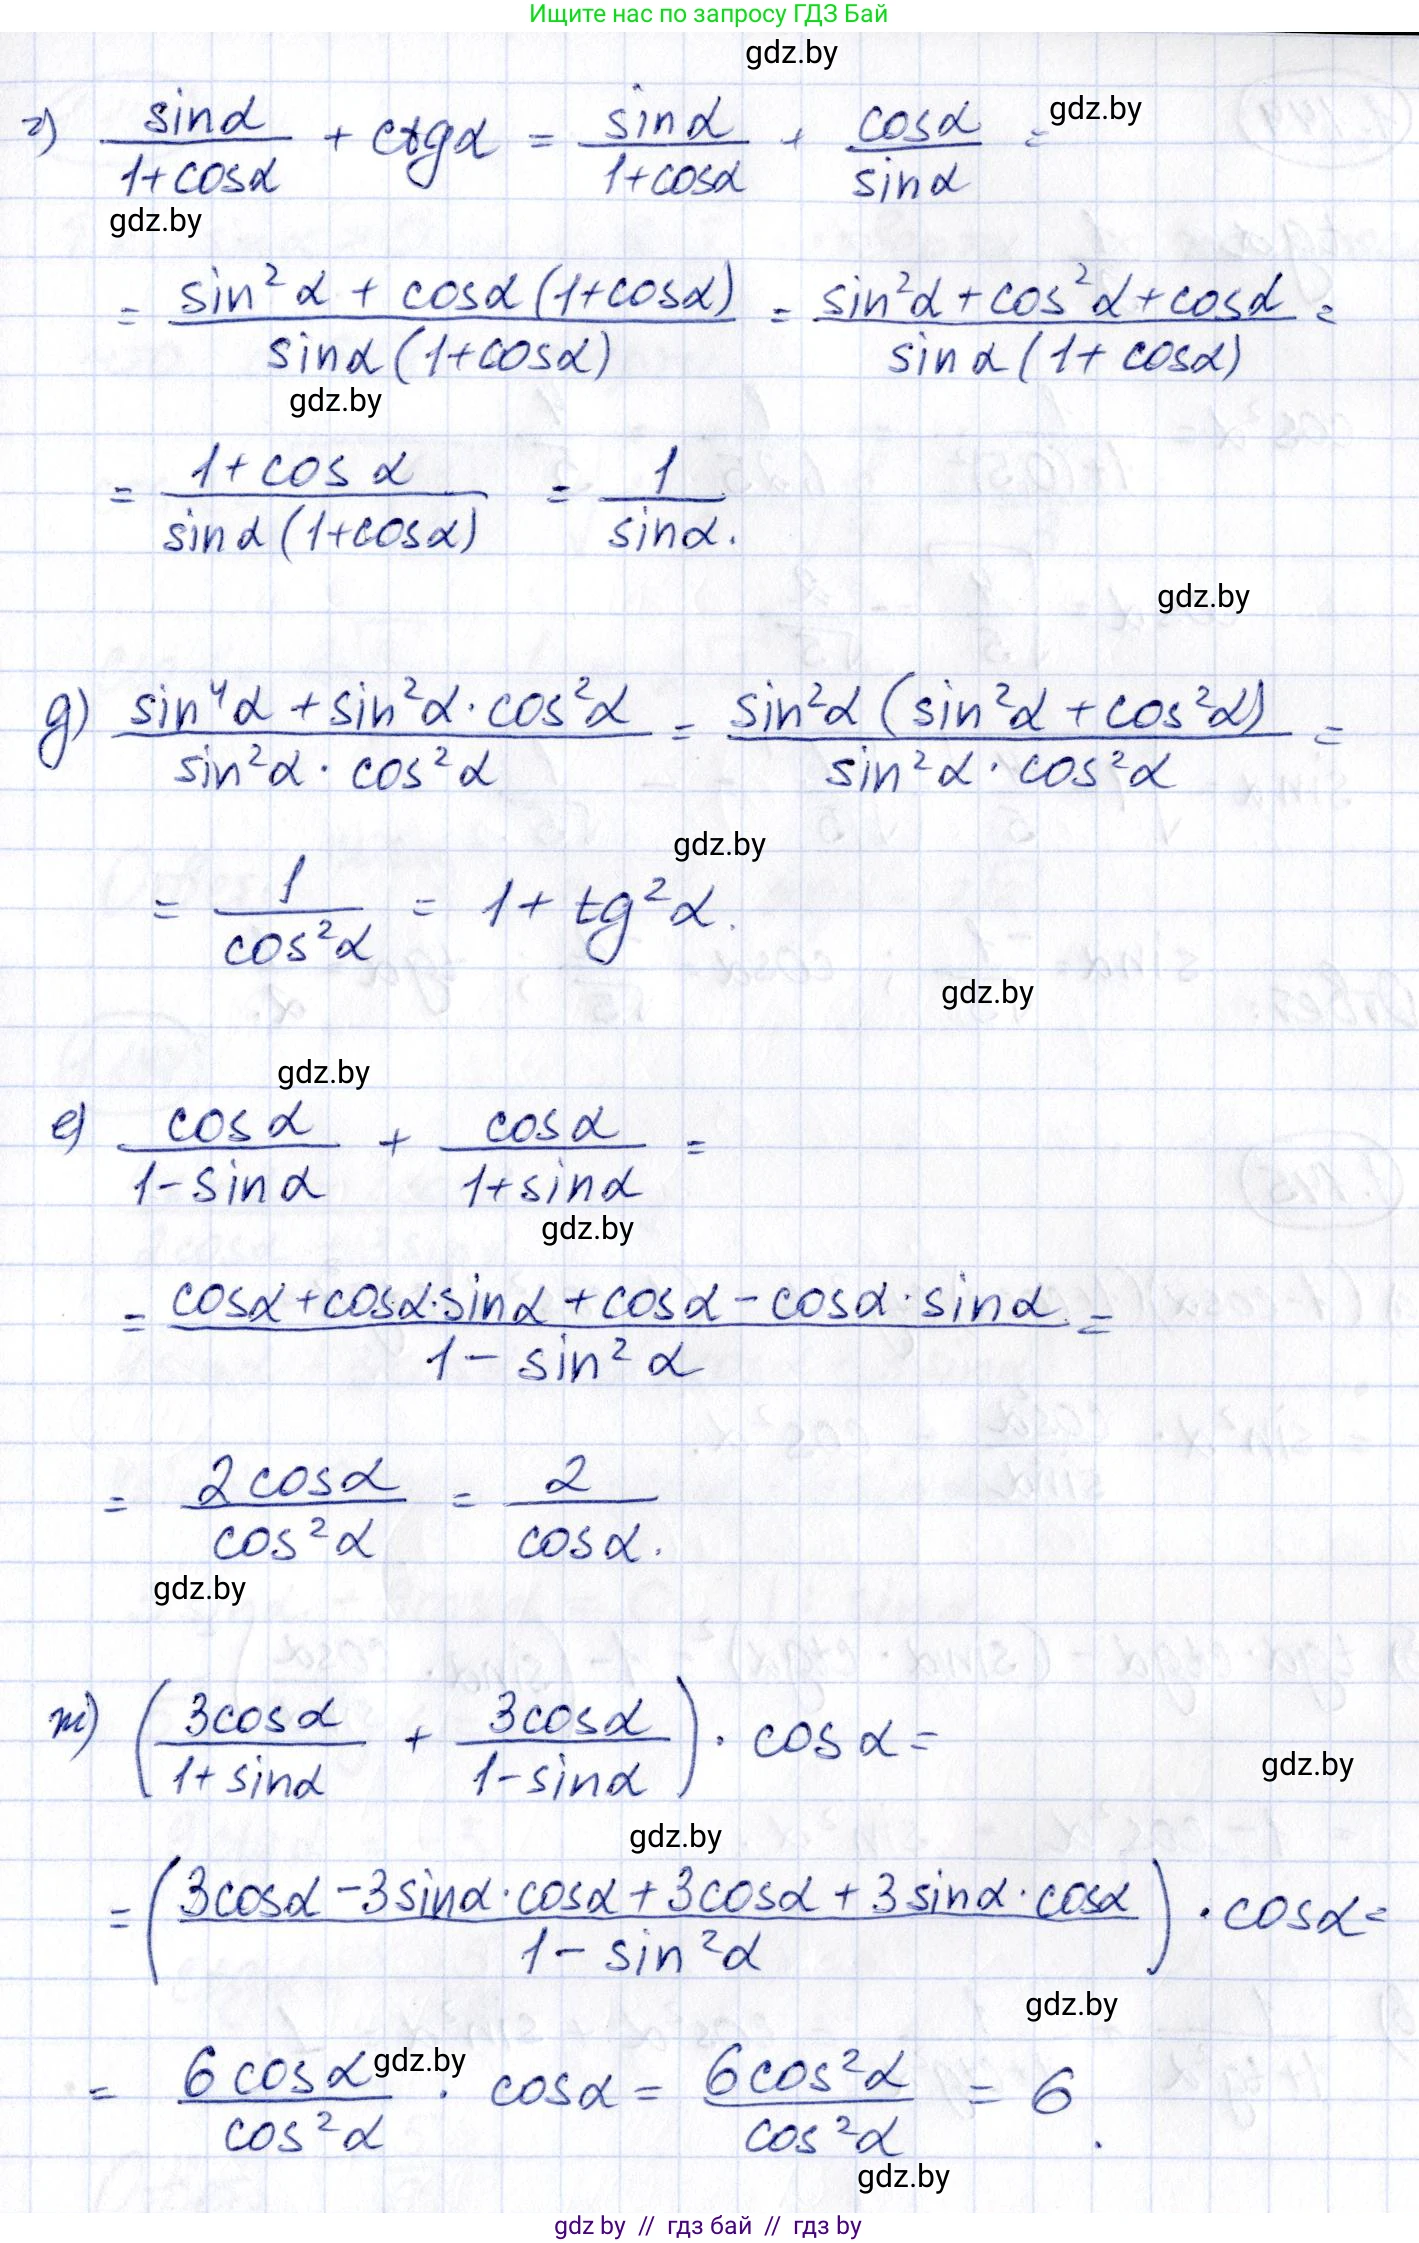 Ищите нас по запросу ГДЗ Бай
gdz.by
г) sinα/(1+cosα) + ctgα = sinα/(1+cosα) + cosα/sinα =
gdz.by
gdz.by
= (sin²α + cosα(1+cosα))/(sinα(1+cosα)) = (sin²α + cos²α + cosα)/(sinα(1+cosα)) =
gdz.by
= (1+cosα)/(sinα(1+cosα)) = 1/sinα.
gdz.by
д) (sin⁴α + sin²α · cos²α)/(sin²α · cos²α) = (sin²α (sin²α + cos²α))/(sin²α · cos²α) =
gdz.by
= 1/cos²α = 1 + tg²α.
gdz.by
gdz.by
е) cosα/(1-sinα) + cosα/(1+sinα) =
gdz.by
= (cosα + cosα·sinα + cosα - cosα · sinα)/(1 - sin²α) =
= 2cosα/cos²α = 2/cosα.
gdz.by
ж) (3cosα/(1+sinα) + 3cosα/(1-sinα)) · cosα =
gdz.by
gdz.by
= ((3cosα - 3sinα · cosα + 3cosα + 3sinα · cosα)/(1 - sin²α)) · cosα =
gdz.by
= 6cosα/cos²α · cosα = 6cos²α/cos²α = 6.
gdz.by
gdz.by
gdz by // гдз бай // гдз by